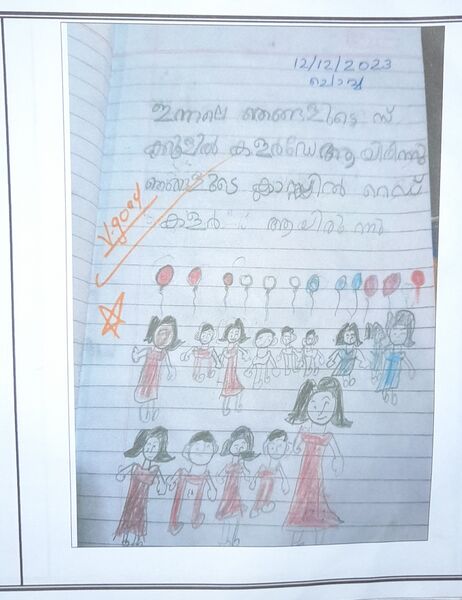 12/12/2023
ചൊവ്വ
ഇന്നലെ ഞങ്ങളുടെ സ്
ക്കൂളിൽ കളർഡേ ആയിരുന്നു
ഞങ്ങളുടെ ക്ലാസ്സിൽ റെഡ്
കളർ ആയിരുന്നു
V.good